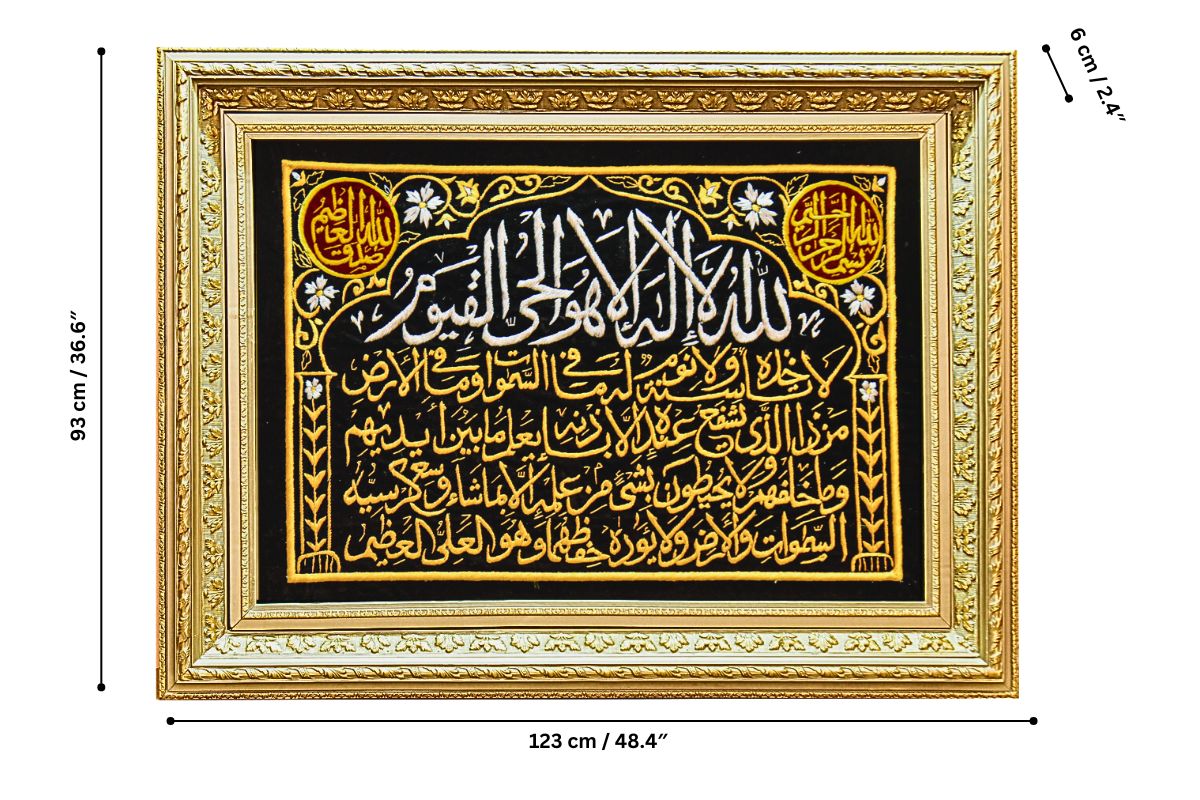 6 cm / 2.4″
بسم الله الرحمن الرحيم
صدق الله العظيم
الله لا إله إلا هو الحي القيوم
لا تأخذه سنة ولا نوم له ما في السموات وما في الأرض
من ذا الذي يشفع عنده إلا بإذنه يعلم ما بين أيديهم
وما خلفهم ولا يحيطون بشئ من علمه إلا بما شاء وسع كرسيه
السموات والأرض ولا يؤده حفظهما وهو العلي العظيم
93 cm / 36.6″
123 cm / 48.4″